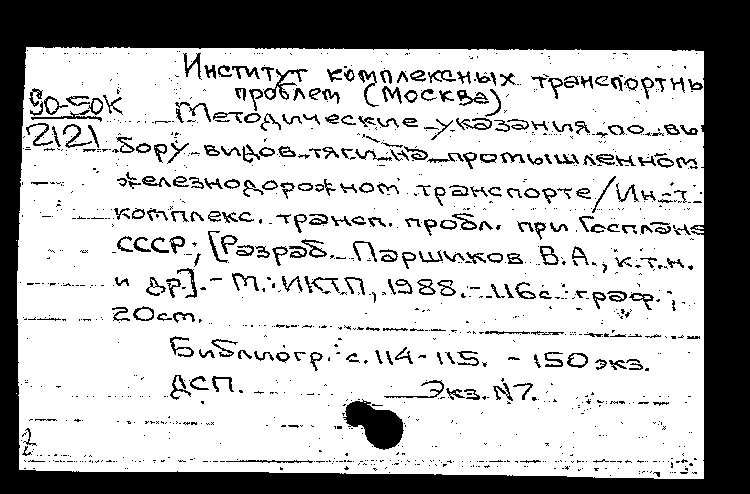 Институт комплексных транспортны
проблем (Москва)
90-50К
2121
Методические указания по вы
бору видов тяги на промышленном
железнодорожном транспорте/Инст.
комплекс. трансп. пробл. при Госплане
СССР; [Разраб. Паршиков В.А., к.т.н.
и др.]. - М.: ИКТП, 1988. - 116с.: граф.;
20см.
Библиогр.: с. 114-115. - 150 экз.
ДСП. Экз. N7.